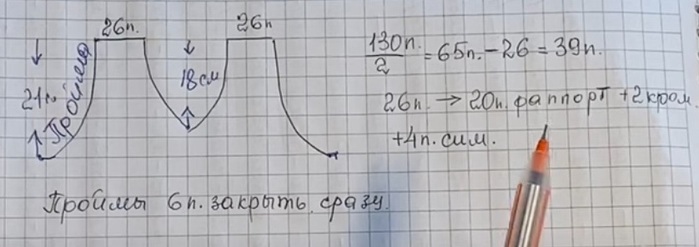 26п. 26п
130п.
2
= 65п. - 26 = 39п.
21см
Пройма
18см
26п. → 20п. раппорт + 2 кром.
+4п. сим.
Проймы 6п. закрыть сразу